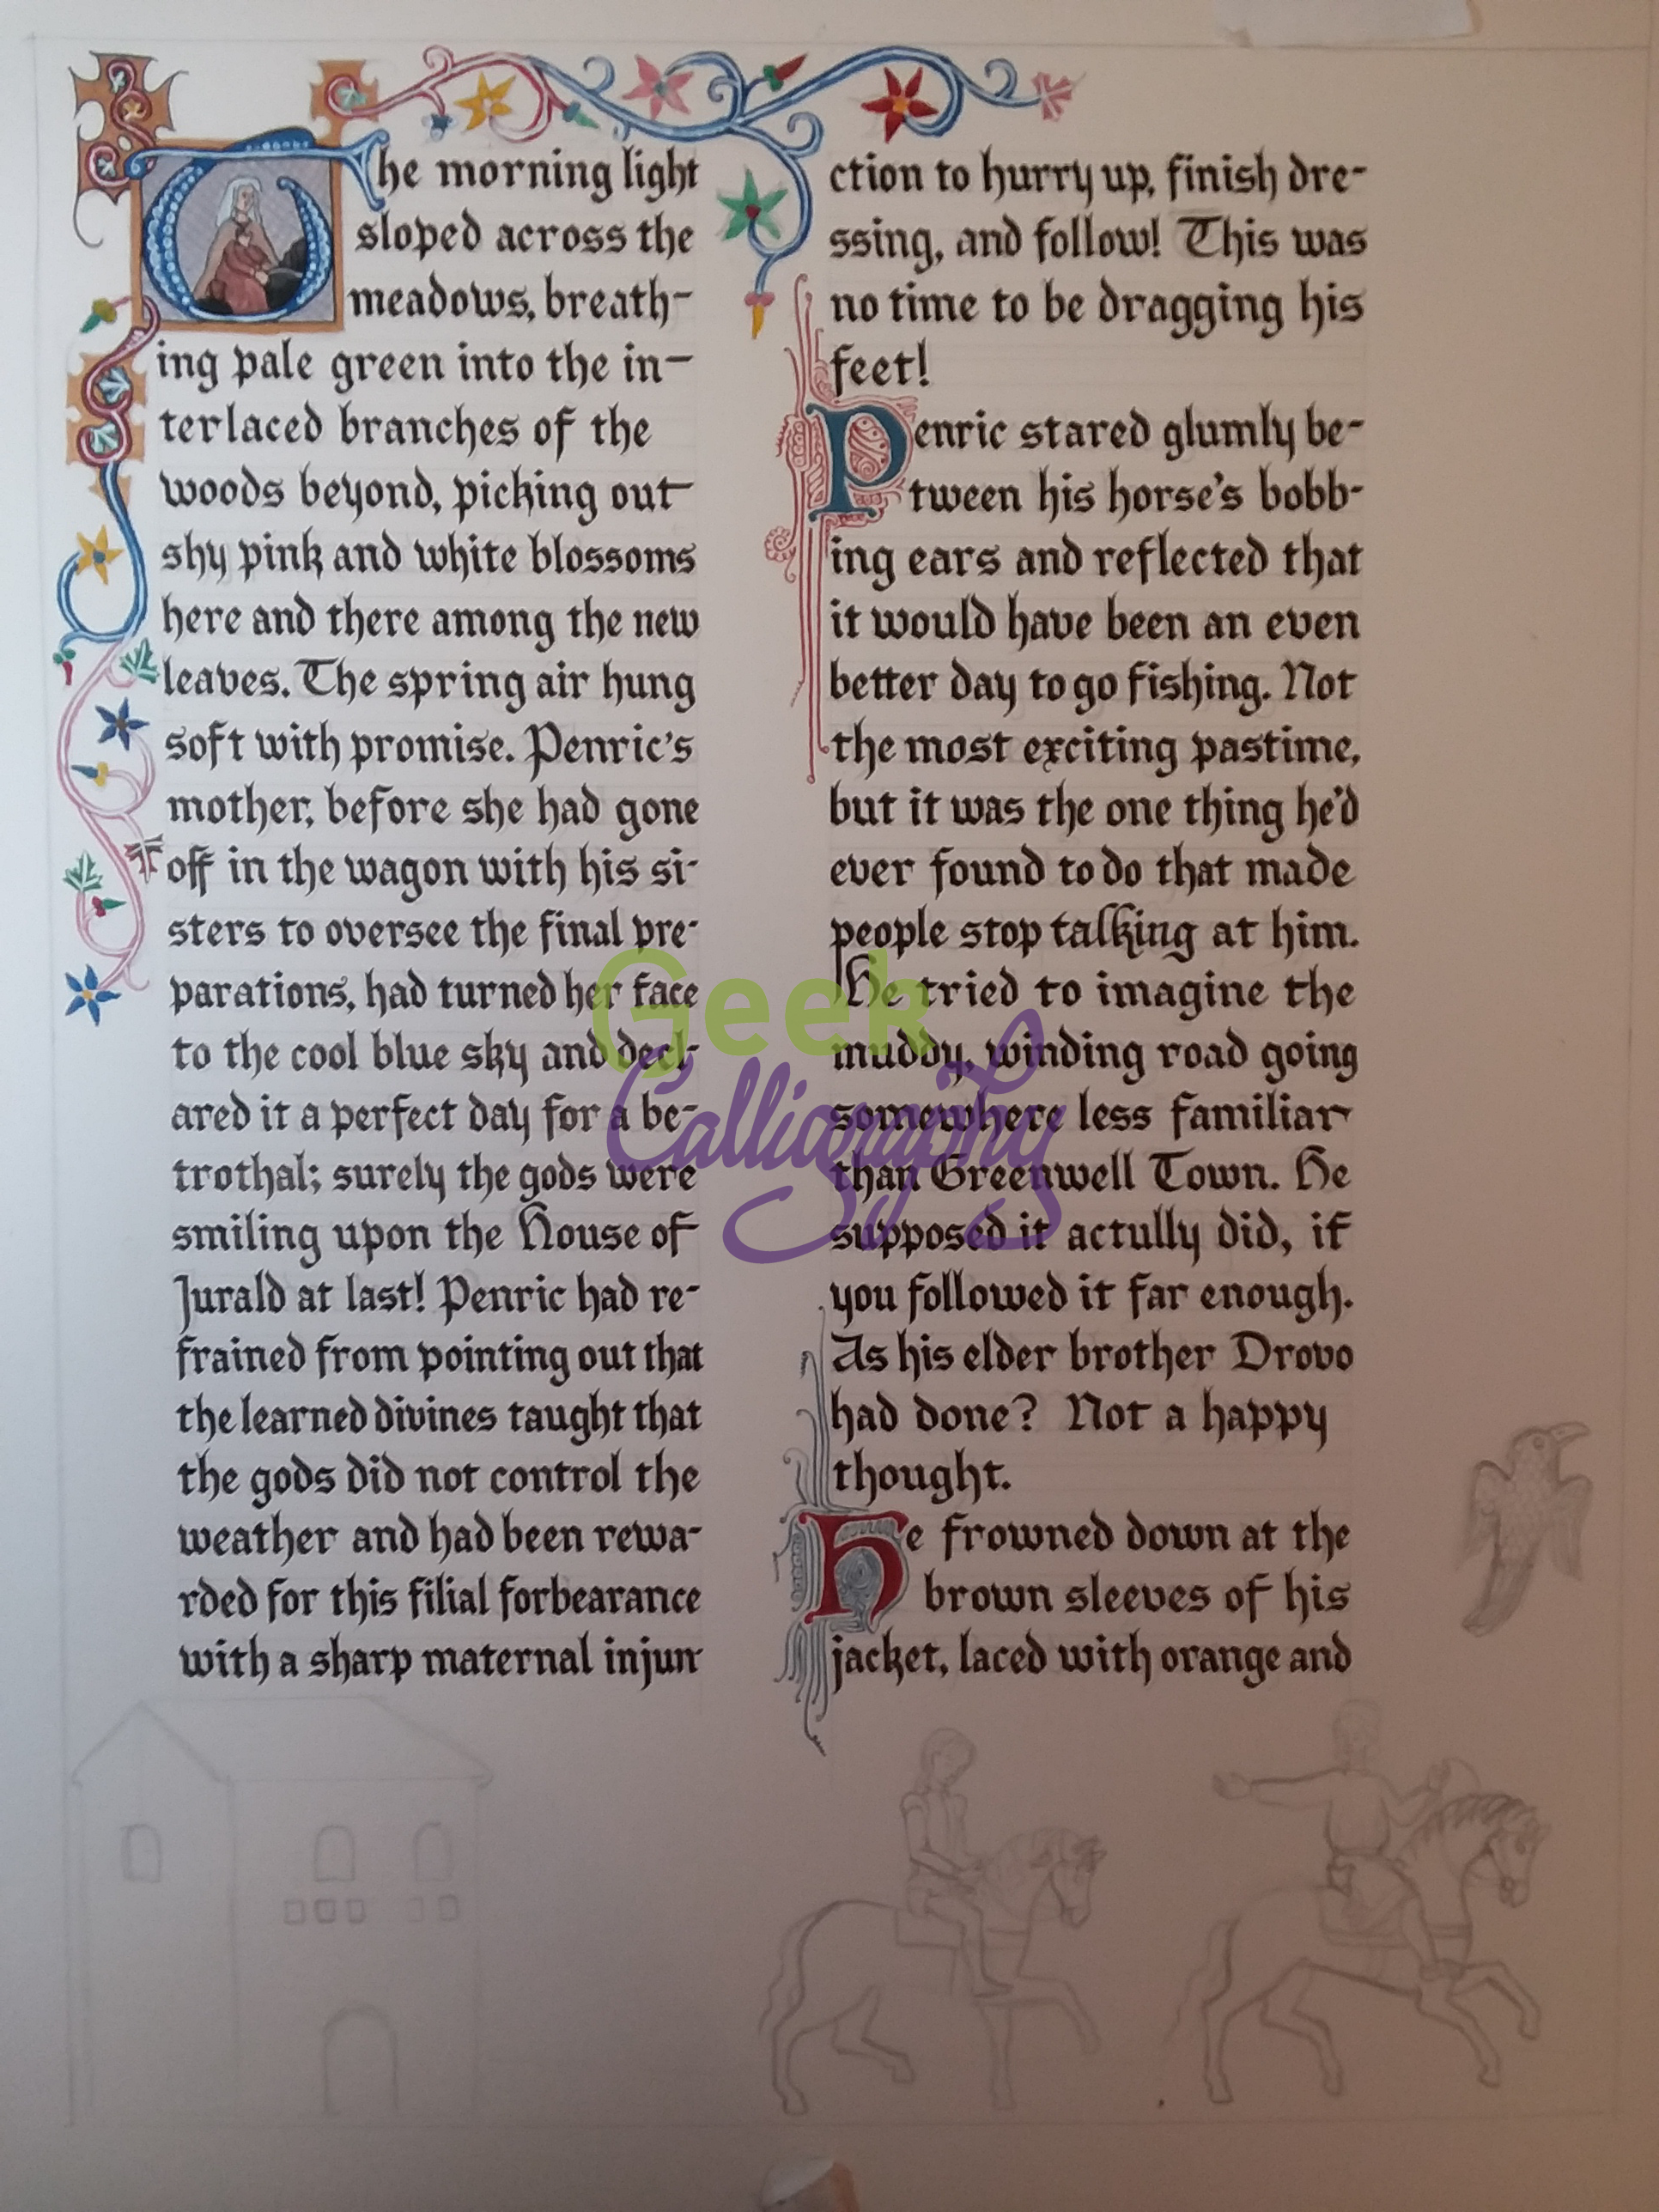 The morning light
sloped across the
meadows, breath-
ing pale green into the in-
terlaced branches of the
woods beyond, picking out
shy pink and white blossoms
here and there among the new
leaves. The spring air hung
soft with promise. Penric's
mother, before she had gone
off in the wagon with his si-
sters to oversee the final pre-
parations, had turned her face
to the cool blue sky and decl-
ared it a perfect day for a be-
trothal; surely the gods were
smiling upon the House of
Jurald at last! Penric had re-
frained from pointing out that
the learned divines taught that
the gods did not control the
weather and had been rewa-
rded for this filial forbearance
with a sharp maternal injun
ction to hurry up, finish dre-
ssing, and follow! This was
no time to be dragging his
feet!
Penric stared glumly be-
tween his horse's bobb-
ing ears and reflected that
it would have been an even
better day to go fishing. Not
the most exciting pastime,
but it was the one thing he'd
ever found to do that made
people stop talking at him.
He tried to imagine the
muddy, winding road going
somewhere less familiar
than Greenwell Town. He
supposed it actully did, if
you followed it far enough.
As his elder brother Drovo
had done? Not a happy
thought.
He frowned down at the
brown sleeves of his
jacket, laced with orange and
Geek
Calligraphy